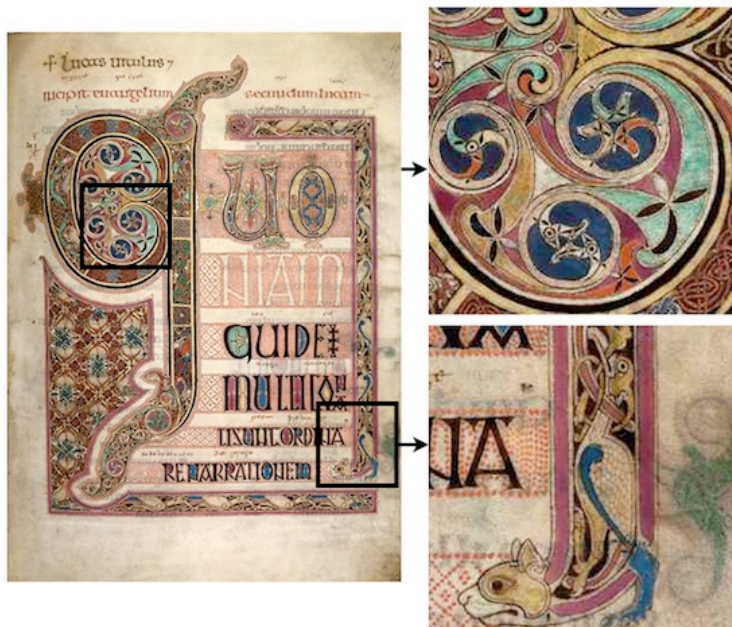 + lucas uitulus
incipit euangelium secundum lucam
QUO
NIAM
QUIDEM
MULTI CONA
TI SUNT ORDINA
RE NARRATIONEM
NA